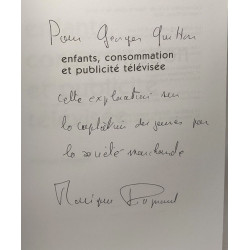 Pour Georges Guitton
enfants, consommation
et publicité télévisée
cette exploration sur
la captation des jeunes par
la société marchande
Monique